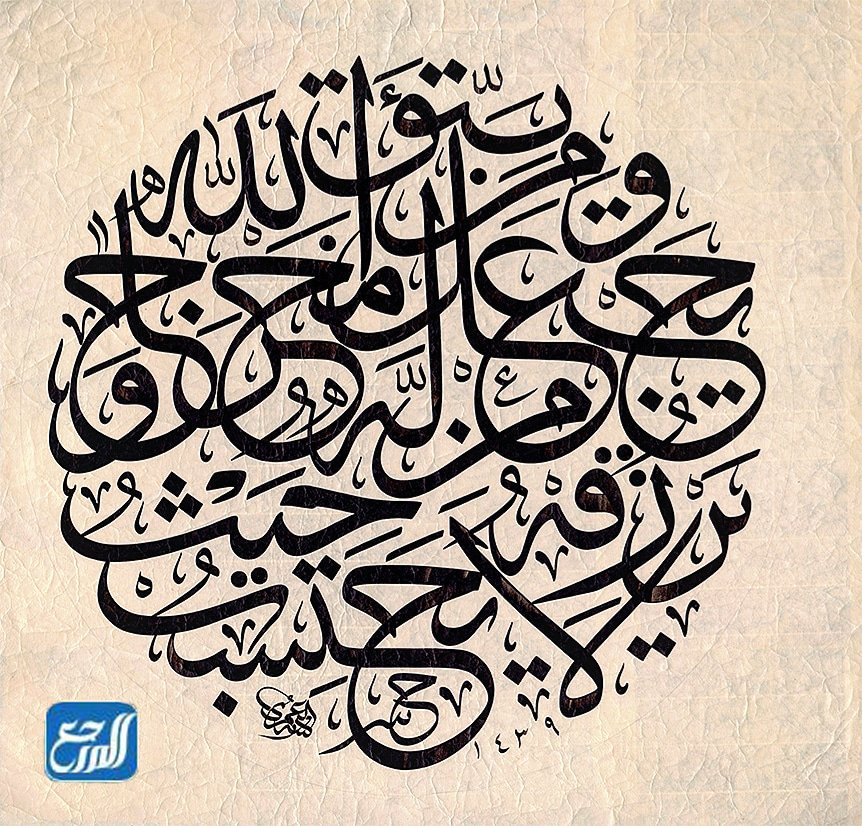 ومن يتَّق اللّٰه
يجعل لّه مخرجًا و
يرزقه من حيث
لا يحتسب
١٤٣٩
المرجع